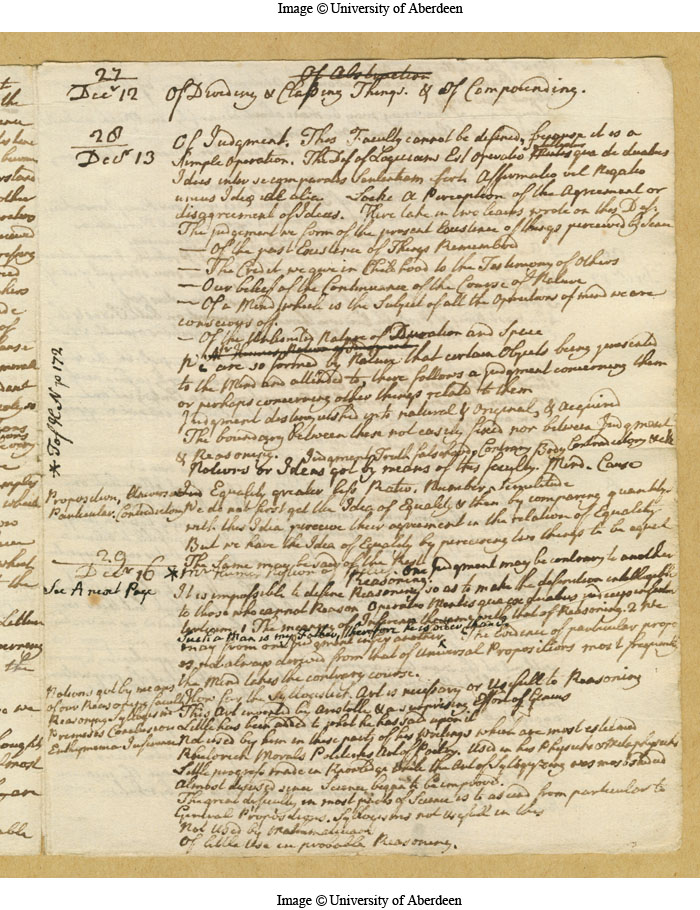 Image © University of Aberdeen
27
Decr 12
Of Abstraction
Of Dividing & Classing Things. & of Compounding.
28
Decr 13
Of Judgment. This Faculty cannot be defined, because it is a
Simple Operation. The Def of Logicians Est Operatio Mentis qua de duabus
Ideis inter se comparatis Sententiam fert Affirmatio vel Negatio
unius Idea de alia Locke a Perception of the Agreement or
disagreement of Ideas. Here take in two leaves wrote on this Def.
The judgement we form of the present Existence of things perceived by Sense
— Of the past Existence of Things Remembred
— The Credit we give in Childhood to the Testimony of Others
— Our belief of the Continuance of the Course of Nature
— Of a Mind which is the Subject of all the Operations of mind we are
conscious of.
— Of the Unlimited Nature of Duration and Space
Mr Humes Notion of Judgment
We are so formed by Nature that certain Objects being presented
to the Mind and attended to, there follows a judgment concerning them
or perhaps concerning other things related to them
Judgment distinguished into natural & Original, & acquired
The boundary between these not easily fixed nor between Judgment
& Reasoning. Judgment Truth falshood, Contrary Contradictory
Notions or Ideas got by means of this faculty. Mind. Cause
Proposition, Universal
Particular. Contradictory
Equality greater less Ratio. Number Similitude
We do not first get the Idea of Equality & then by comparing quantitys
with this Idea perceive their agreement in the relation of Equality
But we have the Idea of Equality by perceiving two things to be equal
The Same may be said of the Rest
* Tof H.N. p 172
29
Decr 16
See A next Page
* Mr Humes Notion of One Judgment may be contrary to another
Reasoning.
It is impossible to define Reasoning so as to make the definition intelligible
to those who cannot Reason Operatio Mentis qua ex duabus judiciis
tertium. The meaning of Inference the same with that of Reasoning. 2 We
Such a Man is my Father, therefore he is older than I
may from one judgment infer another. The Evidence of particular propo
es. not always derived from that of Universal Propositions most frequently
the Mind takes the contrary course.
Notions got by means
of our Reasoning faculty
Reasoning Syllogism
Premises Conclusion
Enthymema Inference
How far the Syllogistick Art is necessary or Usefull to Reasoning
This Art invented by Aristotle & a surprising Effort of Genius
Little has been added to what he has said upon it
Not used by him in these parts of his writings which are most esteemd
Rhetorick Morals Politicks Art of Poetry. Used in his Physicks & Metaphysicks
Little progress made in Knowledge while the Art of Syllogizing was most studied
Almost disused since Science began to be improved.
The great difficulty in most parts of Science is to ascend from particular to
General Propositions. Syllogisms not Usefull in this
Not Used by Mathematicians
Of little Use in probable Reasoning.
Image © University of Aberdeen